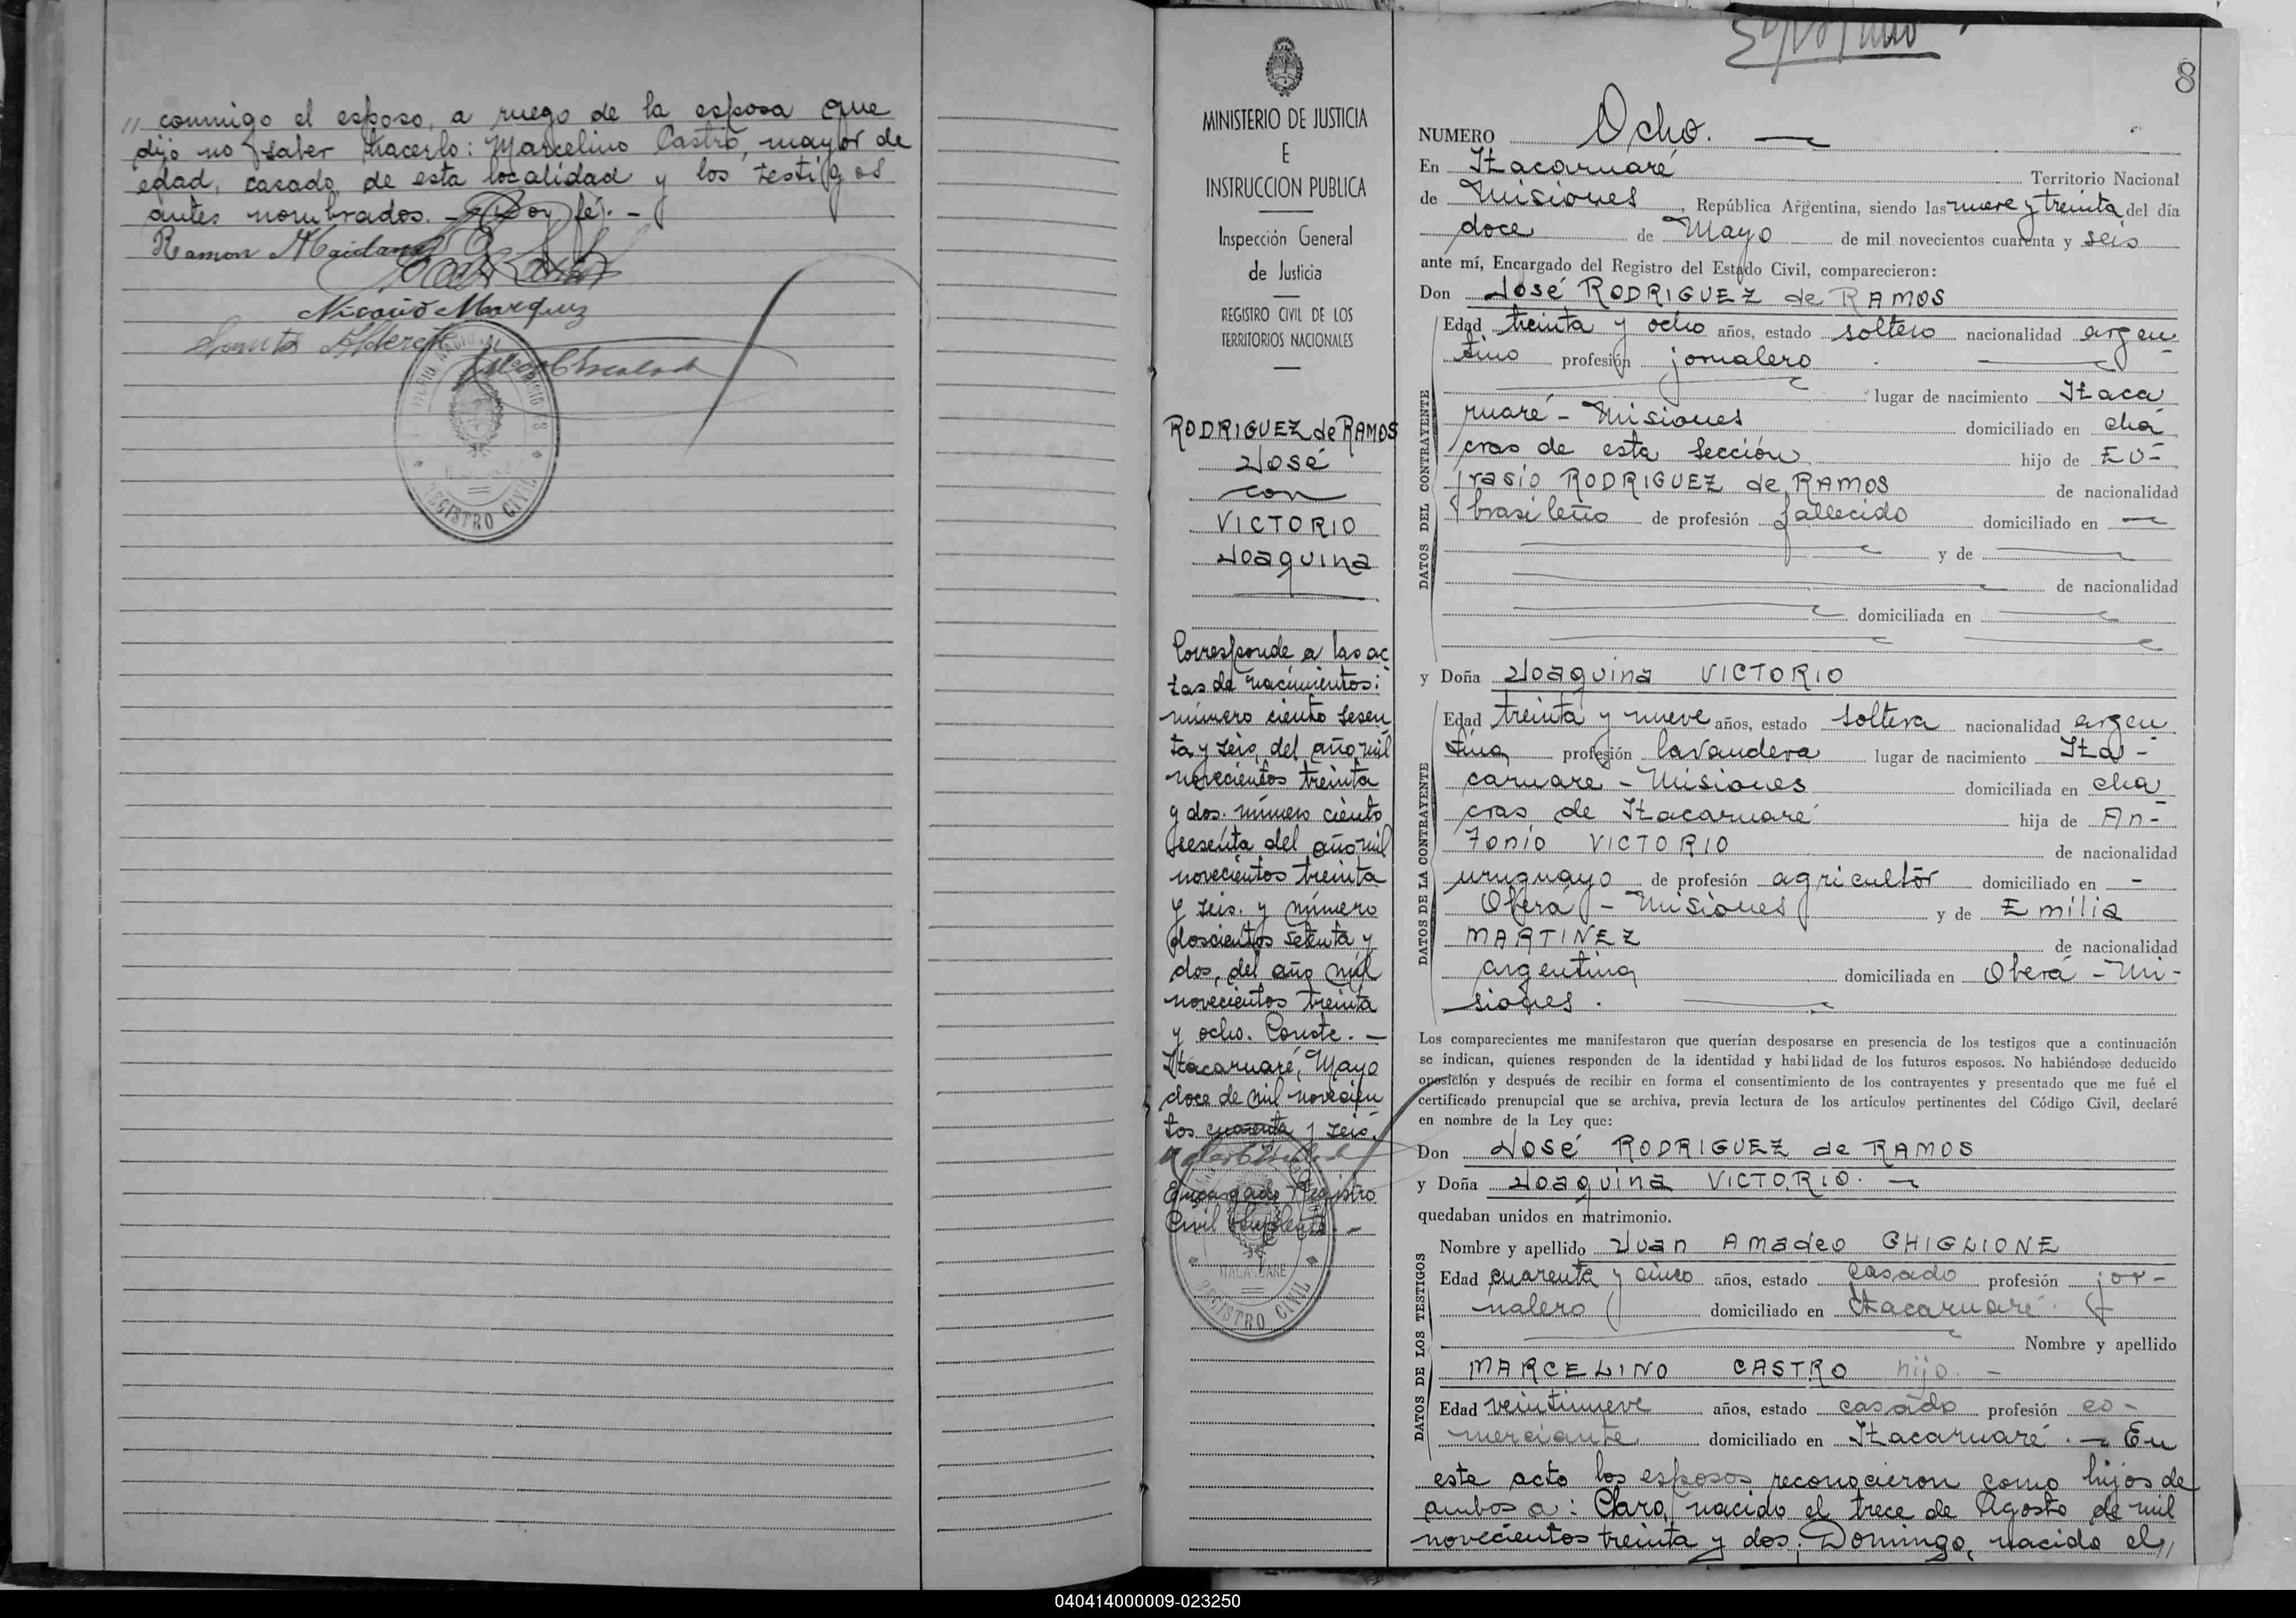 " conmigo el esposo, a ruego de la esposa que
dijo no saber hacerlo: Marcelino Castro, mayor de
edad, casado, de esta localidad y los testigos
antes nombrados. - Doy fé. -
Ramon
Nicacio Marquez
REGISTRO CIVIL
MINISTERIO DE JUSTICIA
E
INSTRUCCION PUBLICA
Inspección General
de Justicia
REGISTRO CIVIL DE LOS
TERRITORIOS NACIONALES
RODRIGUEZ de RAMOS
José
con
VICTORIO
Joaquina
Corresponde a las ac
tas de nacimientos:
número ciento sesen
ta y seis, del año mil
novecientos treinta
y dos. número ciento
sesenta del año mil
novecientos treinta
y seis. y número
doscientos setenta y
dos, del año mil
novecientos treinta
y ocho. Conste. -
Itacaruaré, Mayo
doce de mil novecien
tos cuarenta y seis.
Encargado Registro
Civil Suplente. -
ITACARUARE
REGISTRO CIVIL
8
NUMERO Ocho.
En Itacaruaré Territorio Nacional
de Misiones, República Argentina, siendo las nueve y treinta del día
doce de Mayo de mil novecientos cuarenta y seis
ante mí, Encargado del Registro del Estado Civil, comparecieron:
Don José RODRIGUEZ de RAMOS
DATOS DEL CONTRAYENTE
Edad treinta y ocho años, estado soltero nacionalidad argen
tino profesión jornalero
lugar de nacimiento Itaca
ruaré - Misiones domiciliado en chá
cras de esta Sección hijo de EU-
frasio RODRIGUEZ de RAMOS de nacionalidad
brasileño de profesión fallecido domiciliado en —
y de
de nacionalidad
domiciliada en
y Doña Joaquina VICTORIO
DATOS DE LA CONTRAYENTE
Edad treinta y nueve años, estado soltera nacionalidad argen
tina profesión lavandera lugar de nacimiento Ita-
caruare - Misiones domiciliada en cha
cras de Itacaruaré hija de An-
tonio VICTORIO de nacionalidad
uruguayo de profesión agricultor domiciliado en -
Oberá - Misiones y de Emilia
MARTINEZ de nacionalidad
argentina domiciliada en Oberá - Mi-
siones.
Los comparecientes me manifestaron que querían desposarse en presencia de los testigos que a continuación
se indican, quienes responden de la identidad y habilidad de los futuros esposos. No habiéndose deducido
oposición y después de recibir en forma el consentimiento de los contrayentes y presentado que me fué el
certificado prenupcial que se archiva, previa lectura de los artículos pertinentes del Código Civil, declaré
en nombre de la Ley que:
Don José RODRIGUEZ de RAMOS
y Doña Joaquina VICTORIO.
quedaban unidos en matrimonio.
DATOS DE LOS TESTIGOS
Nombre y apellido Juan Amadeo GHIGLIONE
Edad cuarenta y cinco años, estado casado profesión jor-
nalero domiciliado en Itacaruaré.
Nombre y apellido
MARCELINO CASTRO hijo. -
Edad veintinueve años, estado casado profesión co-
merciante domiciliado en Itacaruaré. - En
este acto los esposos reconocieron como hijos de
ambos a: Claro, nacido el trece de Agosto de mil
novecientos treinta y dos; Domingo, nacido el "
040414000009-023250